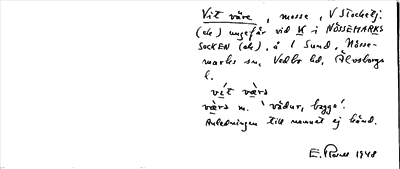 Vit väre, mosse, V Stockelj.
(ek) ungefär vid K i NÖSSEMARKS
SOCKEN (ek), å l Sund, Nösse-
marks sn, Vedbo hd, Älvsborgs
l.
vit värs
värs m. 'vädur, bagge'.
Anledningen till namnet ej känd.
E. 1948